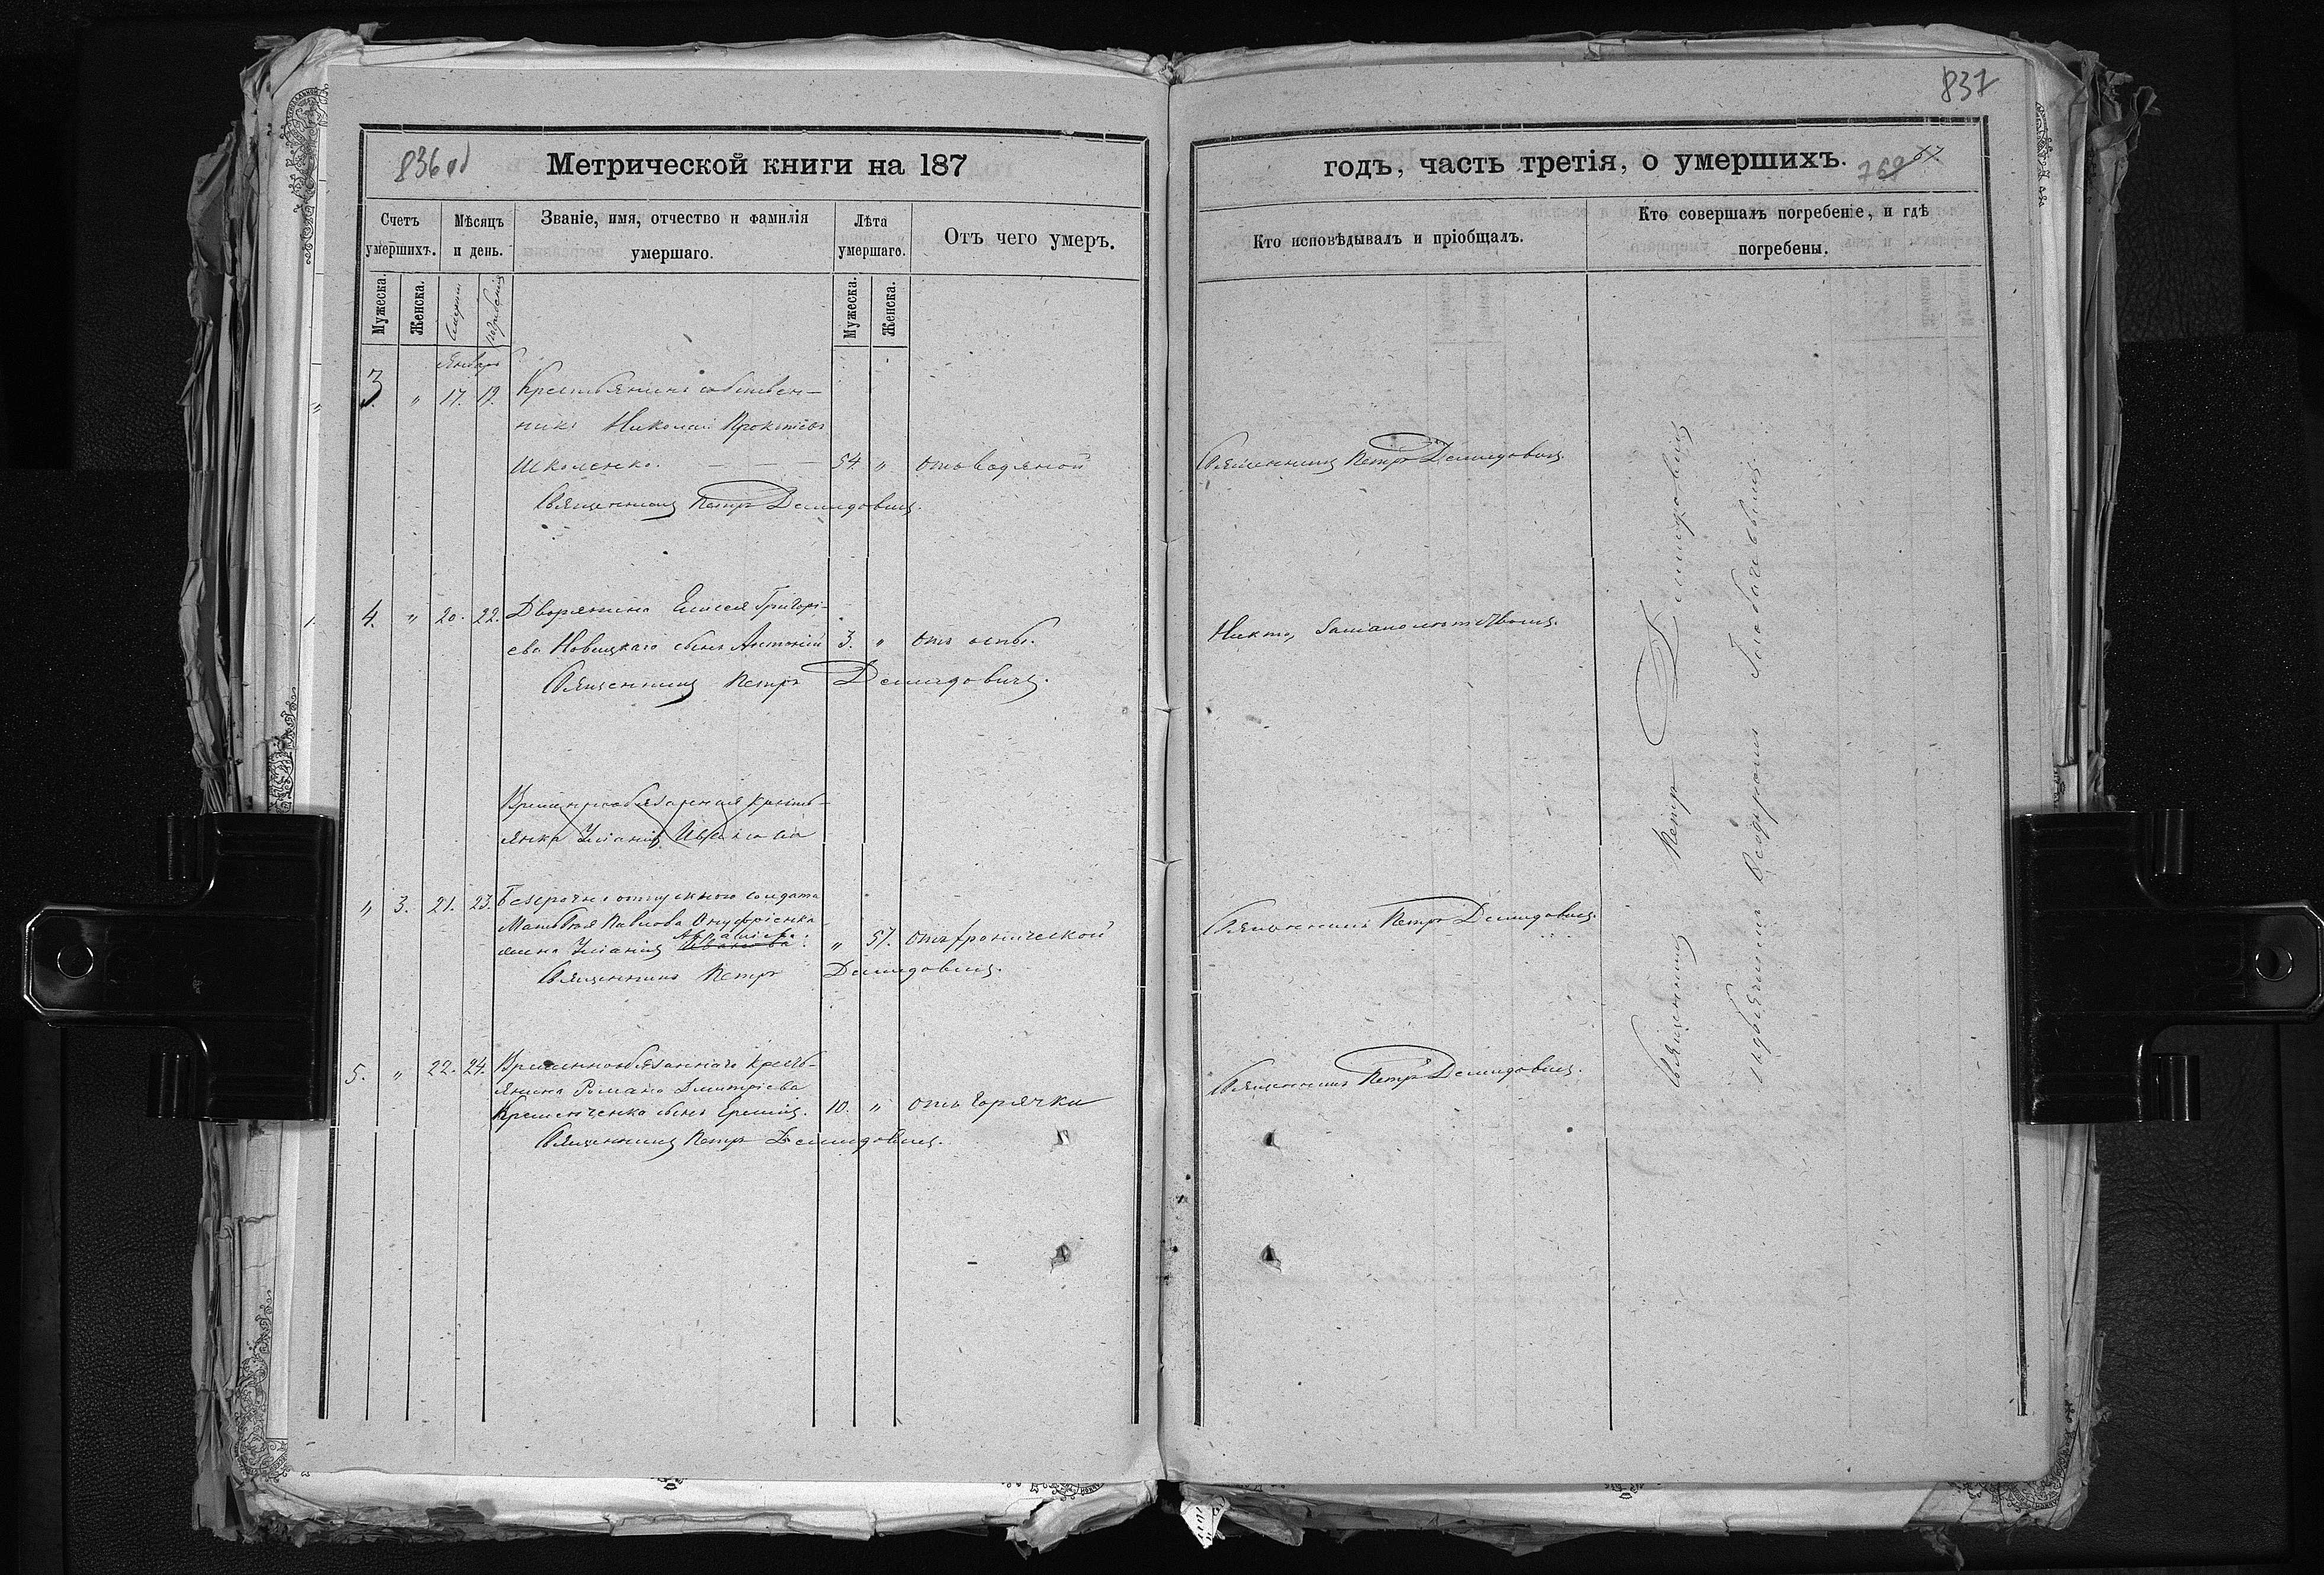 836 об
Метрической книги на 187
Счетъ умершихъ.
Мѣсяцъ и день.
Званіе, имя, отчество и фамилія умершаго.
Лѣта умершаго.
Отъ чего умеръ.
Мужеска.
Женска.
Смерти
погребенія
Мужеска.
Женска.
Январь
3. " 17. 19. Крестьянинъ собствен-
никъ Николай Прокопіевъ
Школенко. — — — 54. " отъ водяной
Священникъ Петръ Демидовичъ.
4. " 20. 22. Дворянина Елисея Григорі-
ева Новицкаго сынъ Антоній 3. " отъ оспы.
Священникъ Петръ Демидовичъ.
Временнообязанная кресть-
янка Уліанія Иванова
" 3. 21. 23. Безсрочно отпускного солдата
Матвѣя Павлова Онуфріенка
жена Уліанія Иванова. " 57. отъ хронической
Священникъ Петръ Демидовичъ.
5. " 22. 24. Временнообязаннаго кресть-
янина Романа Дмитріева
Кременченка сынъ Еремій. 10. " отъ горячки
Священникъ Петръ Демидовичъ.
837
годъ, часть третія, о умершихъ.
769
Кто исповѣдывалъ и пріобщалъ.
Кто совершалъ погребеніе, и гдѣ погребены.
Священникъ Петръ Демидовичъ.
Никто,
Священникъ Петръ Демидовичъ.
Священникъ Петръ Демидовичъ.
Священникъ Петръ Демидовичъ